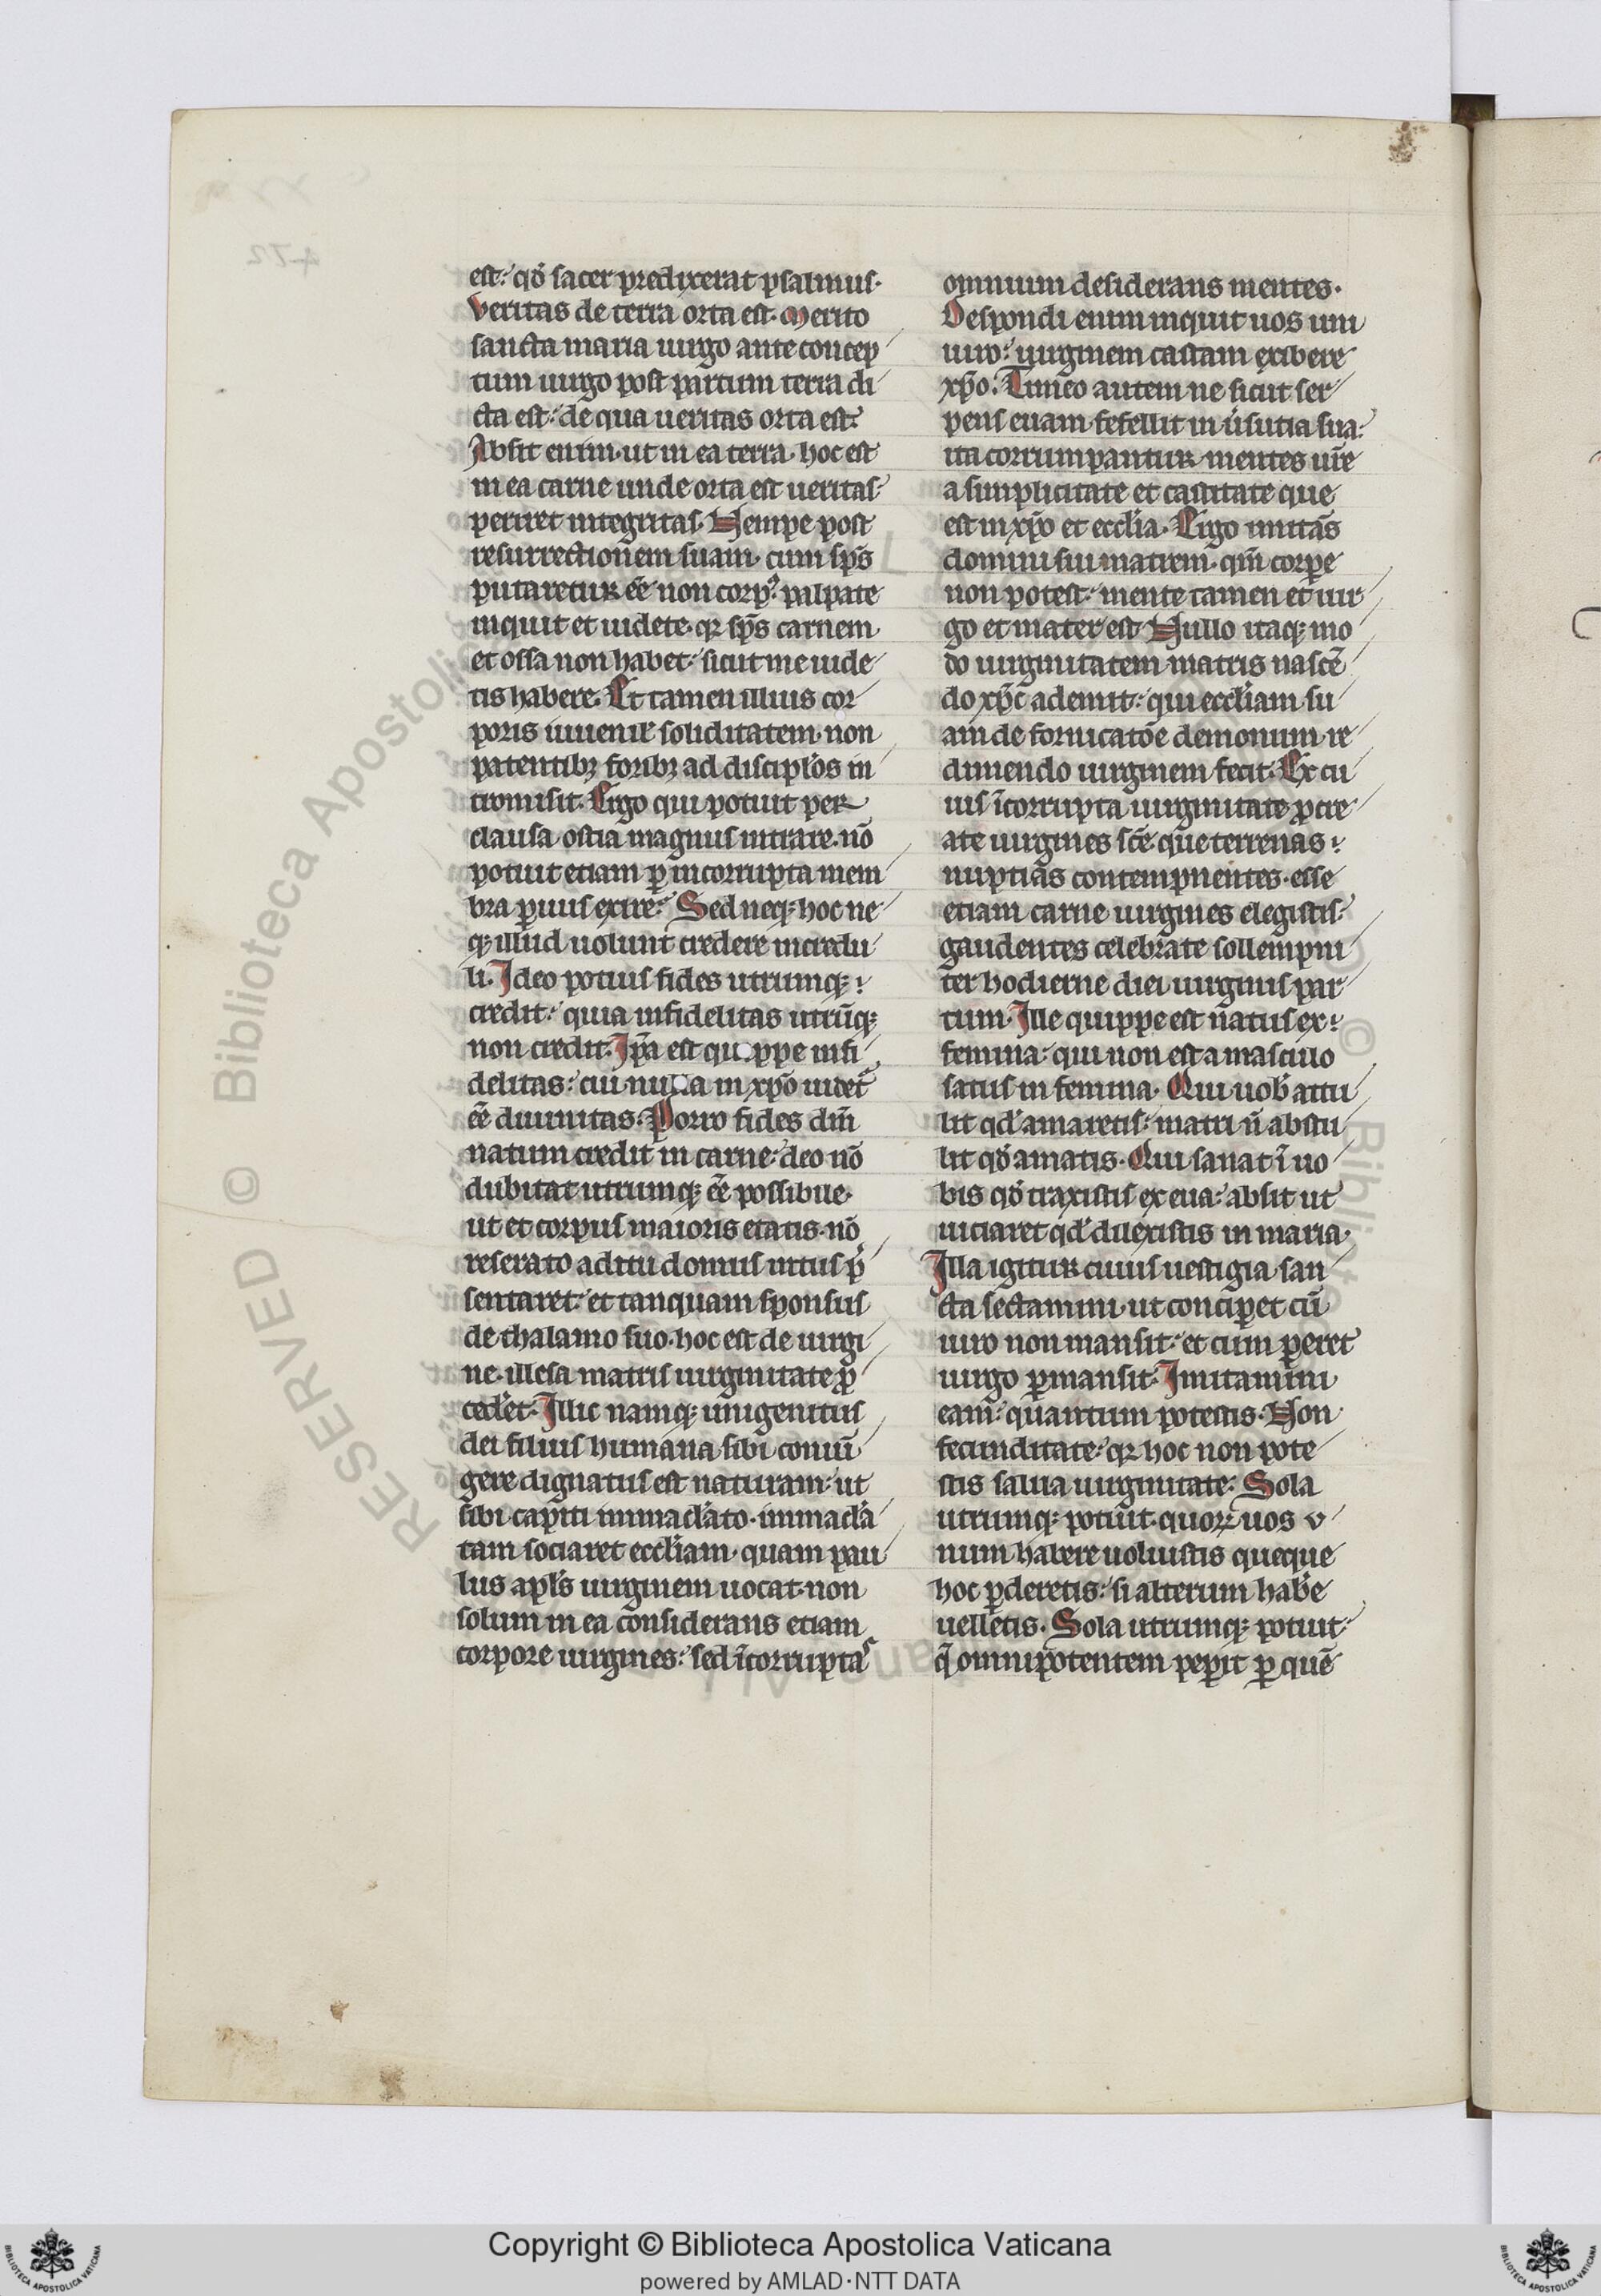 est: qđ sacer predixerat psalmus.
Veritas de terra orta est. Merito
sancta maria uirgo ante concep
tum uirgo post partum terra di
cta est: de qua ueritas orta est.
Absit enim. ut in ea terra. hoc est
in ea carne unde orta est ueritas
periret integritas. Nempe post
resurrectionem suam. cum sp̄s
putaretur eē non corpꝰ. palpate
inquit et uidete. qꝛ sp̄s carnem
et ossa non habet: sicut me uide
tis habere. Et tamen illius cor
poris iuuenil' soliditatem. non
patentibꝫ foribꝫ ad discipl'os in
tromisit. Ergo qui potuit per
clausa ostia magnus intrare. nō
potuit etiam ꝑ incorrupta mem
bra ꝑuus exire. Sed neqꝫ hoc ne
qꝫ illud uolunt credere incredu
li. Ideo potius fides utrumqꝫ
credit: quia infidelitas utrūqꝫ
non credit. Ip̄a est quippe infi
delitas: cui nulla in xp̄o uidet᷑
eē diuinitas. Porro fides dm̄
natum credit in carne. deo nō
dubitat utrumqꝫ eē possibile.
ut et corpus maioris etatis. nō
reserato aditu domus intus p̄
sentaret. et tanquam sponsus
de thalamo suo. hoc est de uirgi
ne. illesa matris uirginitate ꝓ
ced'et. Illic namqꝫ unigenitus
dei filius humana sibi coniū
gere dignatus est naturam. ut
sibi capiti immacl'ato. immacl'a
tam sociaret eccl'iam. quam pau
lus apl's uirginem uocat. non
solum in ea considerans etiam
corpore uirgines: sed īcorruptas
omnium desiderans mentes.
Despondi enim inquit uos uni
uiro: uirginem castam exibere
xp̄o. Timeo autem ne sicut ser
pens euam fefellit in ūsutia sua.
ita corrumpantur mentes ur̄e
a simplicitate et castitate que
est in xp̄o et eccl'ia. Ergo imitās
domini sui matrem. qm̄ corpe
non potest. mente tamen et uir
go et mater est. Nullo itaqꝫ mo
do uirginitatem matris nascē
do xp̄c ademit: qui eccl'iam su
am de fornicatōe demonum re
dimendo uirginem fecit. Ex cu
ius īcorrupta uirginitate ꝓcre
ate uirgines sc̄e. que terrenas
nuptias contempnentes. esse
etiam carne uirgines elegistis.
gaudentes celebrate sollempni
ter hodierne diei uirginis par
tum. Ille quippe est natus ex
femina: qui non est a masculo
satus in femina. Qui uob' attu
lit qđ amaretis: matri ñ abstu
lit qđ amatis. Qui sanat ī uo
bis qđ traxistis ex eua: absit ut
uiciaret qđ dilexistis in maria.
Illa igitur cuius uestigia san
cta sectamini. ut conciꝑet cū
uiro non mansit: et cum ꝑeret
uirgo ꝑmansit. Imitamini
eam: quantum potestis. Non
fecunditate: qꝛ hoc non pote
stis salua uirginitate. Sola
utrumqꝫ potuit. quoꝝ uos v
num habere uoluistis queque
hoc ꝑderetis: si alterum hab'e
uelletis. Sola utrumqꝫ potuit.
q̄ omnipotentem peꝑit ꝑ quē
Copyright © Biblioteca Apostolica Vaticana
powered by AMLAD·NTT DATA